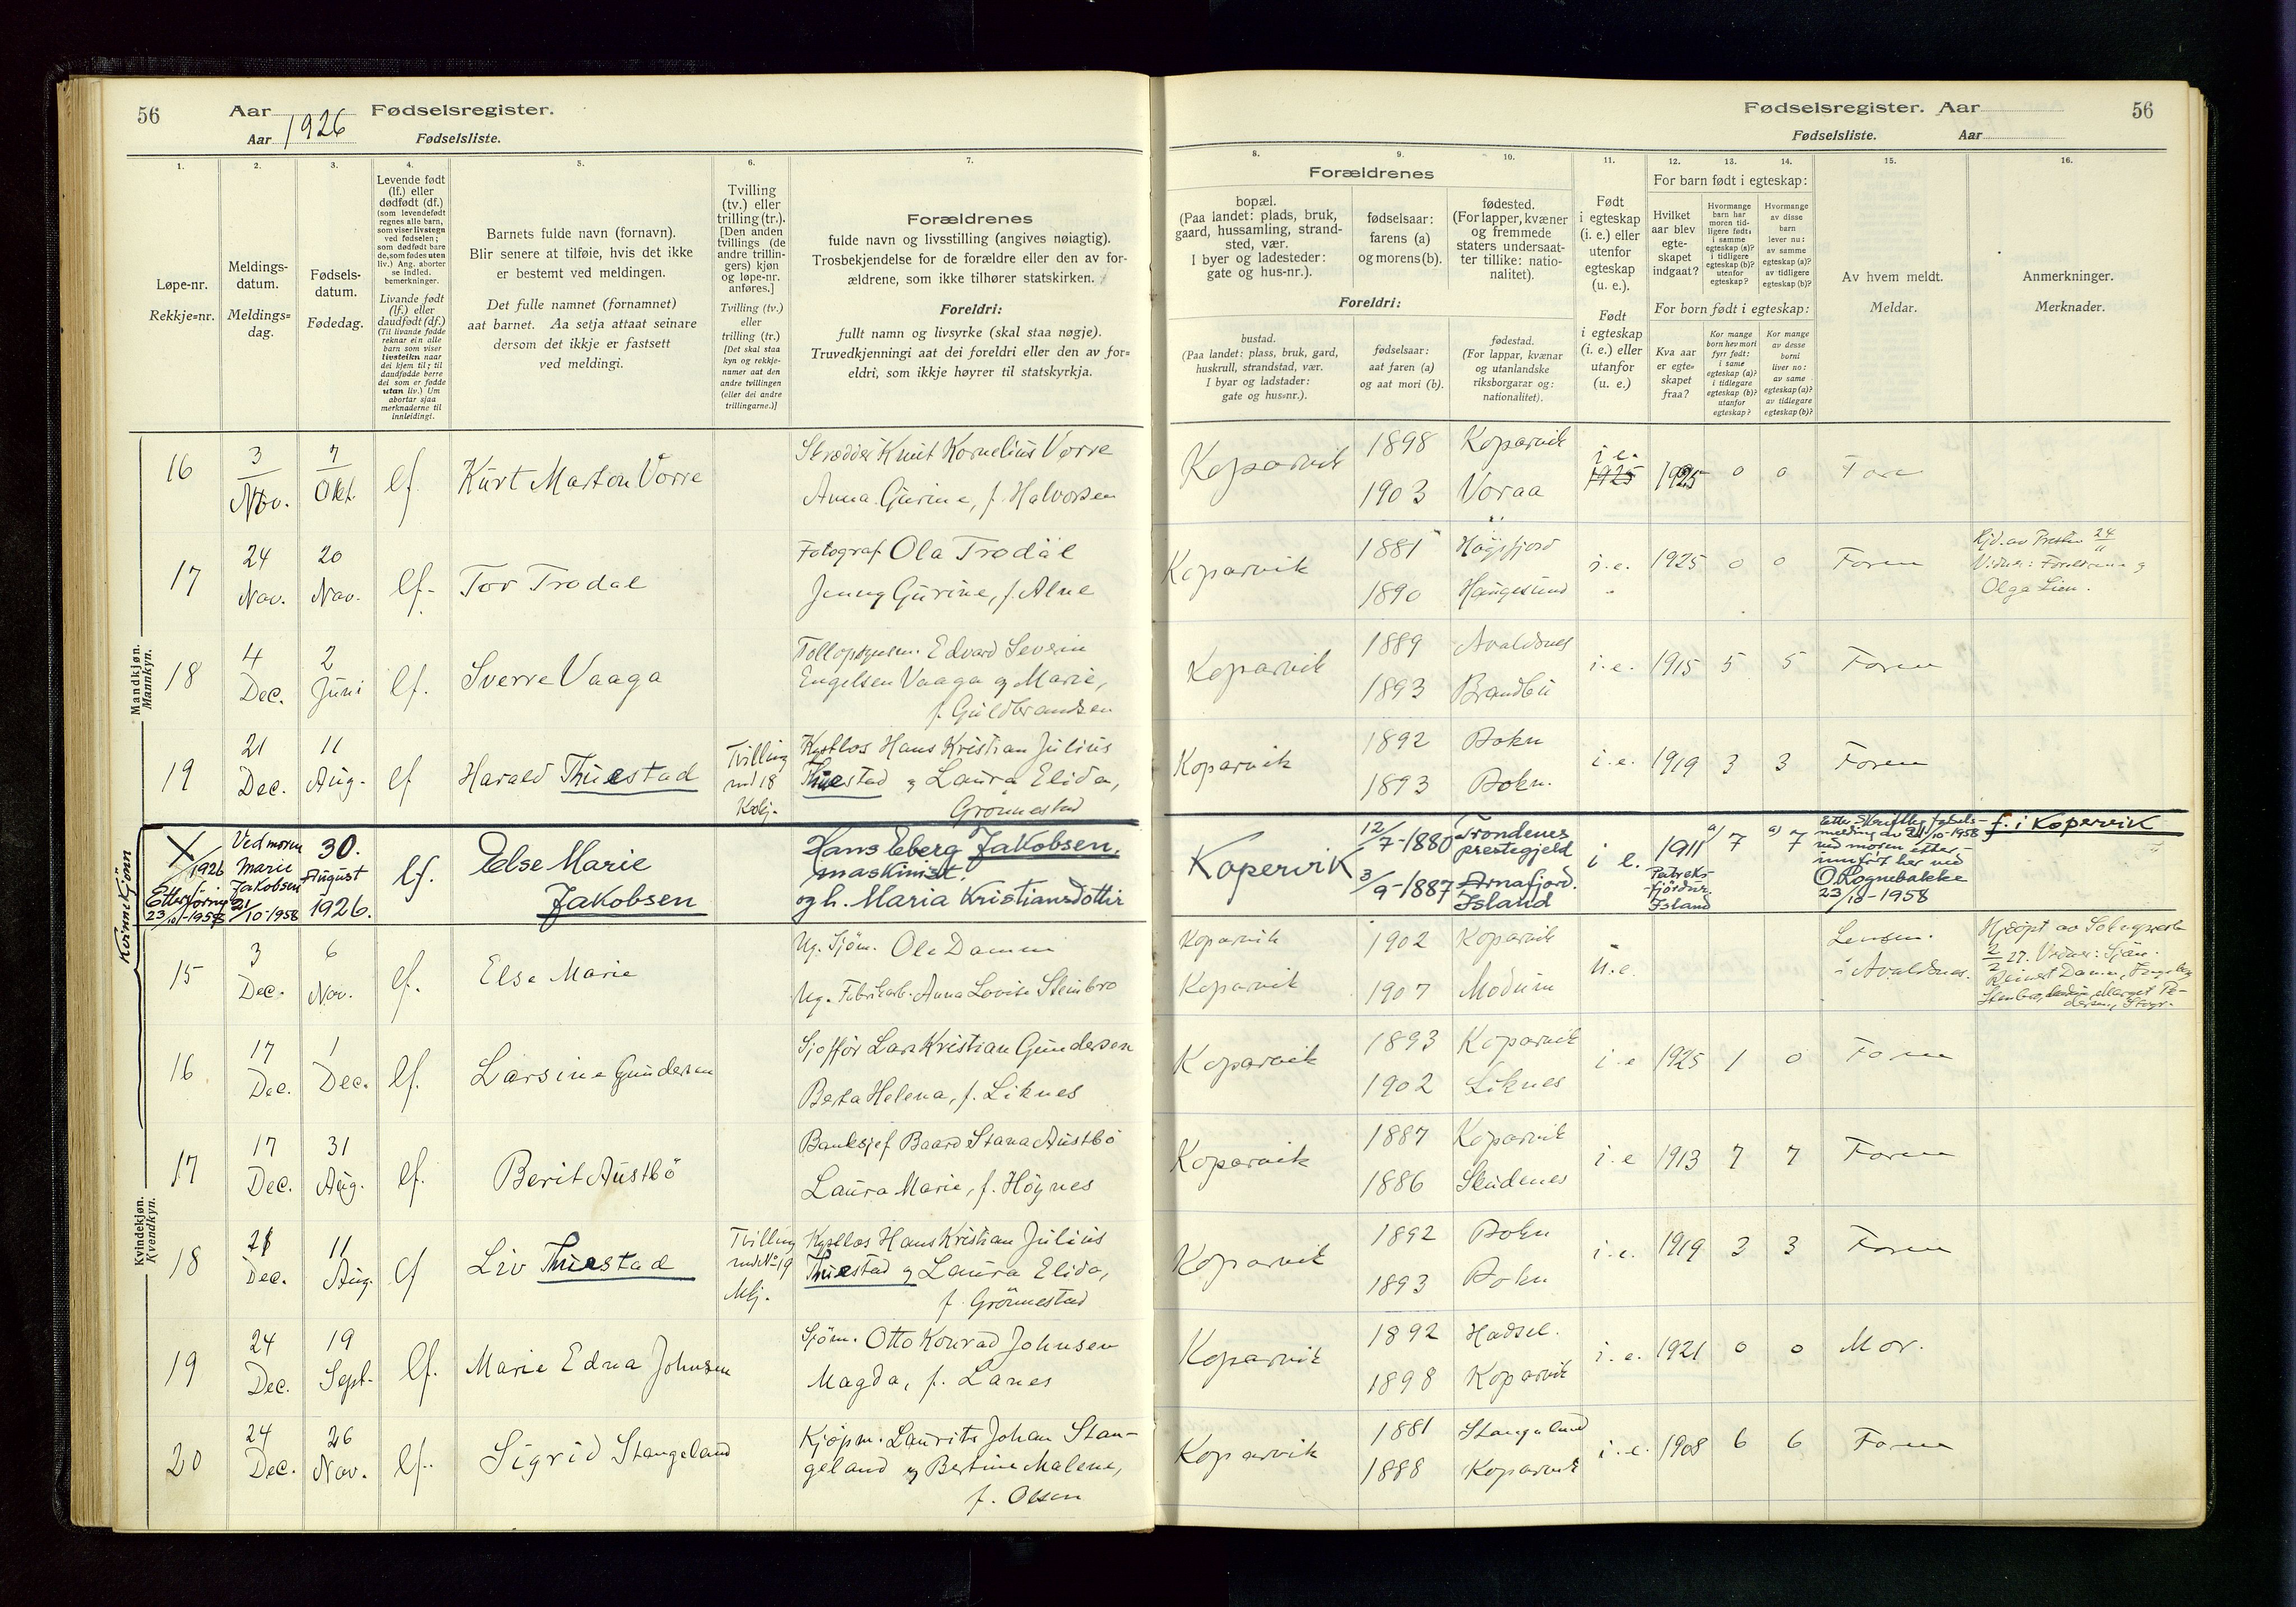 56
Aar 1926 Fødselsregister.
Aar Fødselsliste.
1. 2. 3. 4. 5. 6. 7.
Løpe-nr.
Rekkje=nr.
Meldings-
datum.
Meldings=
dag.
Fødsels-
datum.
Fødedag.
Levende født
(lf.) eller
dødfødt (df.)
(som levendefødt
regnes alle barn,
som viser livstegn
ved fødselen;
som dødfødt bare
de, som fødes uten
liv.) Ang. aborter
se indled.
bemerkninger.
Livande født
(lf.) eller
daudfødt (df.)
(Til livande fødde
reknar ein alle
barn som viser
livsteikn naar
dei kjem til; til
daudfødde berre
dei som er fødde
utan liv.) Um
abortar sjaa
merknaderne til
innleidingi.
Barnets fulde navn (fornavn).
Blir senere at tilføie, hvis det ikke
er bestemt ved meldingen.
Det fulle namnet (fornamnet)
aat barnet. Aa setja attaat seinare
dersom det ikkje er fastsett
ved meldingi.
Tvilling
(tv.) eller
trilling (tr.).
[Den anden
tvillings (de
andre trillin-
gers) kjøn
og løpe-nr.
anføres.]
Tvilling (tv.)
eller
trilling (tr.)
[Det skal staa
kyn og rekkje-
numer aat den
andre tvillingen
(eller dei andre
trillingarne.)]
Forældrenes
fulde navn og livsstilling (angives nøiagtig).
Trosbekjendelse for de forældre eller den av for-
ældrene, som ikke tilhører statskirken.
Foreldri:
fullt namn og livsyrke (skal staa nøgje).
Truvedkjenningi aat dei foreldri eller den av for=
eldri, som ikkje høyrer til statskyrkja.
Mandkjøn.
Mannkyn.
16 3 Nov. 7 Okt. lf Kurt Marton Vorre
Skrædder Knut Kornelius Vorre
Anna Gurine, f. Halvorsen
17 24 Nov. 20 Nov. lf. Tor Trodal
Fotograf Ola Trodal
Jenny Gurine, f. Alne
18 4 Dec. 2 Juni lf. Sverre Vaaga
Edvard Severin
Engelsen Vaaga og Marie,
f. Guldbrandsen
19 21 Dec. 11 Aug. lf Harald Thuestad
Tvilling
med 18
Kvkj.
Hans Kristian Julius
Thuestad og Laura Elida,
Grønnestad
Kvinnekjönn
X/1926
Etterføring
23/10-1958
Ved moren
Marie
Jakobsen
21/10-1958
30.
August
1926.
lf.
Else Marie
Jakobsen
Hans Eberg Jakobsen.
maskinist.
og h. Maria Kristiansdottir
Kvindekjøn.
Kvendkyn.
15 3 Dec. 6 Nov. lf. Else Marie
Ug. Sjøm. Ole Damm
Ug. Fabrikarb. Anna Lovise Steinbro
16 17 Dec. 1 Dec. lf. Larsine Gundersen
Sjoffør Lars Kristian Gundersen
Berta Helena, f. Liknes
17 17 Dec. 31 Aug. lf. Berit Austbö
Banksjef Baard Stana Austbö
Laura Marie, f. Höynes
18 21 Dec. 11 Aug. lf Liv Thuestad
Tvilling
med No 19
Mkj.
Hans Kristian Julius
Thuestad og Laura Elida,
f. Grönnestad
19 24 Dec. 19 Sept. lf. Marie Edna Johnsen
Sjöm. Otto Konrad Johnsen
Magda, f. Lanes
20 24 Dec. 26 Nov. lf. Sigrid Stangeland
Kjøpm. Laurits Johan Stan-
geland og Bertine Malene,
f. Olsen
Fødselsregister. Aar
56
Fødselsliste. Aar
8. 9. 10. 11. 12. 13. 14. 15. 16.
Forældrenes
bopæl.
(Paa landet: plads, bruk,
gaard, hussamling, strand-
sted, vær.
I byer og ladesteder:
gate og hus-nr.).
fødselsaar:
farens (a)
og morens (b).
fødested.
(For lapper, kvæner
og fremmede
staters undersaat-
ter tillike: natio-
nalitet).
Foreldri:
bustad.
(Paa landet: plass, bruk, gard,
huskrull, strandstad, vær.
I byar og ladstader:
gate og hus=nr.).
fødselsaar:
aat faren (a)
og aat mori (b).
fødestad.
(For lappar, kvænar
og utanlandske
riksborgarar og:
nationalitet).
Født
i egteskap
(i. e.) eller
utenfor
egteskap
(u. e.).
Født
i egteskap
(i. e.) eller
utanfor
(u. e.)
For barn født i egteskap:
Hvilket
aar blev
egte-
skapet
indgaat?
Hvormange
barn har
moren tid-
ligere født:
i samme
egteskap (a)?
i tidligere
egteskap (b)?
utenfor
egteskap?
Hvormange
av disse
barn
lever nu:
av samme
egteskap (a)?
av tidligere
egteskap (b)?
For born født i egteskap:
Kva aar
er egte=
skapet
fraa?
Kor mange
born hev mori
fyrr født:
i same
egteskap (a)?
i tidlegare
egteskap (b)?
utanfor
egteskap?
Kor mange
av desse
borni
liver no:
av same
egteskap (a)?
av tidlegare
egteskap (b)?
Av hvem meldt.
Meldar.
Anmerkninger.
Merknader.
Koparvik 1898 Koparvik i. e. 1925 1925 0 0
1903 Voraa
Koparvik 1881 Högsfjord i. e. 1925 0 0 Faren
1890 Haugesund
Kjd. av Presten 24/11
Vidner: Foreldrene og
Olga Lien.
Koparvik 1889 Avaldsnes i. e. 1915 5 5 Faren
1893 Brandbu
Koparvik 1892 Bokn i. e. 1919 3 3 Faren
1893 Bokn.
Kopervik 12/7-1880 Trondenes
prestegjeld
3/9-1887 Arnafjord.
Island
i e. 1911
Patreks-
fjördur.
Island
a) 7 a) 7
Etter skriftlig fødsels-
melding av 21/10-1958
ved moren etter-
innført her ved
O. Rognebakke
23/10-1958
f. i Kopervik
Koparvik 1902 Koparvik u. e.
Koparvik 1907 Modum
i Avaldsnes.
Koparvik 1893 Koparvik i. e 1925 1 0 Faren
1902 Liknes
Koparvik 1887 Koparvik i. e 1913 7 7 Faren
1886 Skudenes
Koparvik 1892 Bokn i. e. 1919 3 3 Faren
1893 Bokn
Koparvik 1892 Hadsel. i. e. 1921 0 0 Mor.
1898 Koparvik
Koparvik 1881 Stangeland i. e. 1908 6 6 Faren
1888 Koparvik